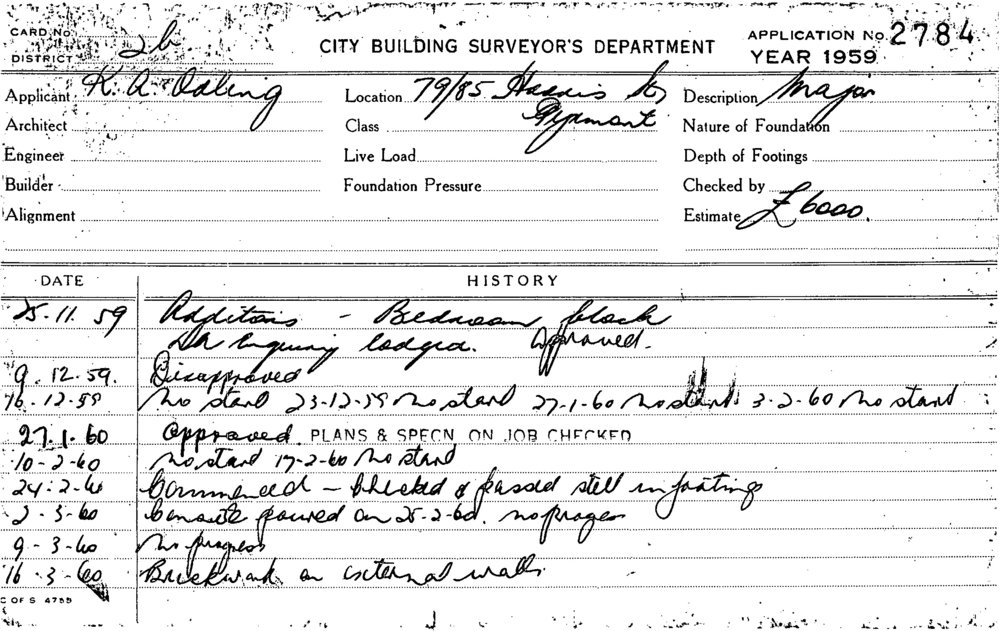 CARD No.
DISTRICT 2b
CITY BUILDING SURVEYOR'S DEPARTMENT
APPLICATION No. 2784
YEAR 1959
Applicant K. A. Odling Location 79/85 Harris St Description Major
Pyrmont
Architect Class Nature of Foundation
Engineer Live Load Depth of Footings
Builder Foundation Pressure Checked by
Alignment Estimate £6000.
DATE HISTORY
25.11.59 Additions - Bedroom block
DA Enquiry lodged. Approved.
9.12.59. Disapproved
16-12-59 No start 23-12-59 No start 27-1-60 No start 3-2-60 No start
27.1.60 Approved. PLANS & SPECN ON JOB CHECKED
10-2-60 No start 17-2-60 No start
24-2-60 Commenced - Checked & passed steel in footings
2-3-60 Concrete poured on 25-2-60. no progress
9-3-60 No progress
16-3-60 Brickwork on external walls
C OF S 4759